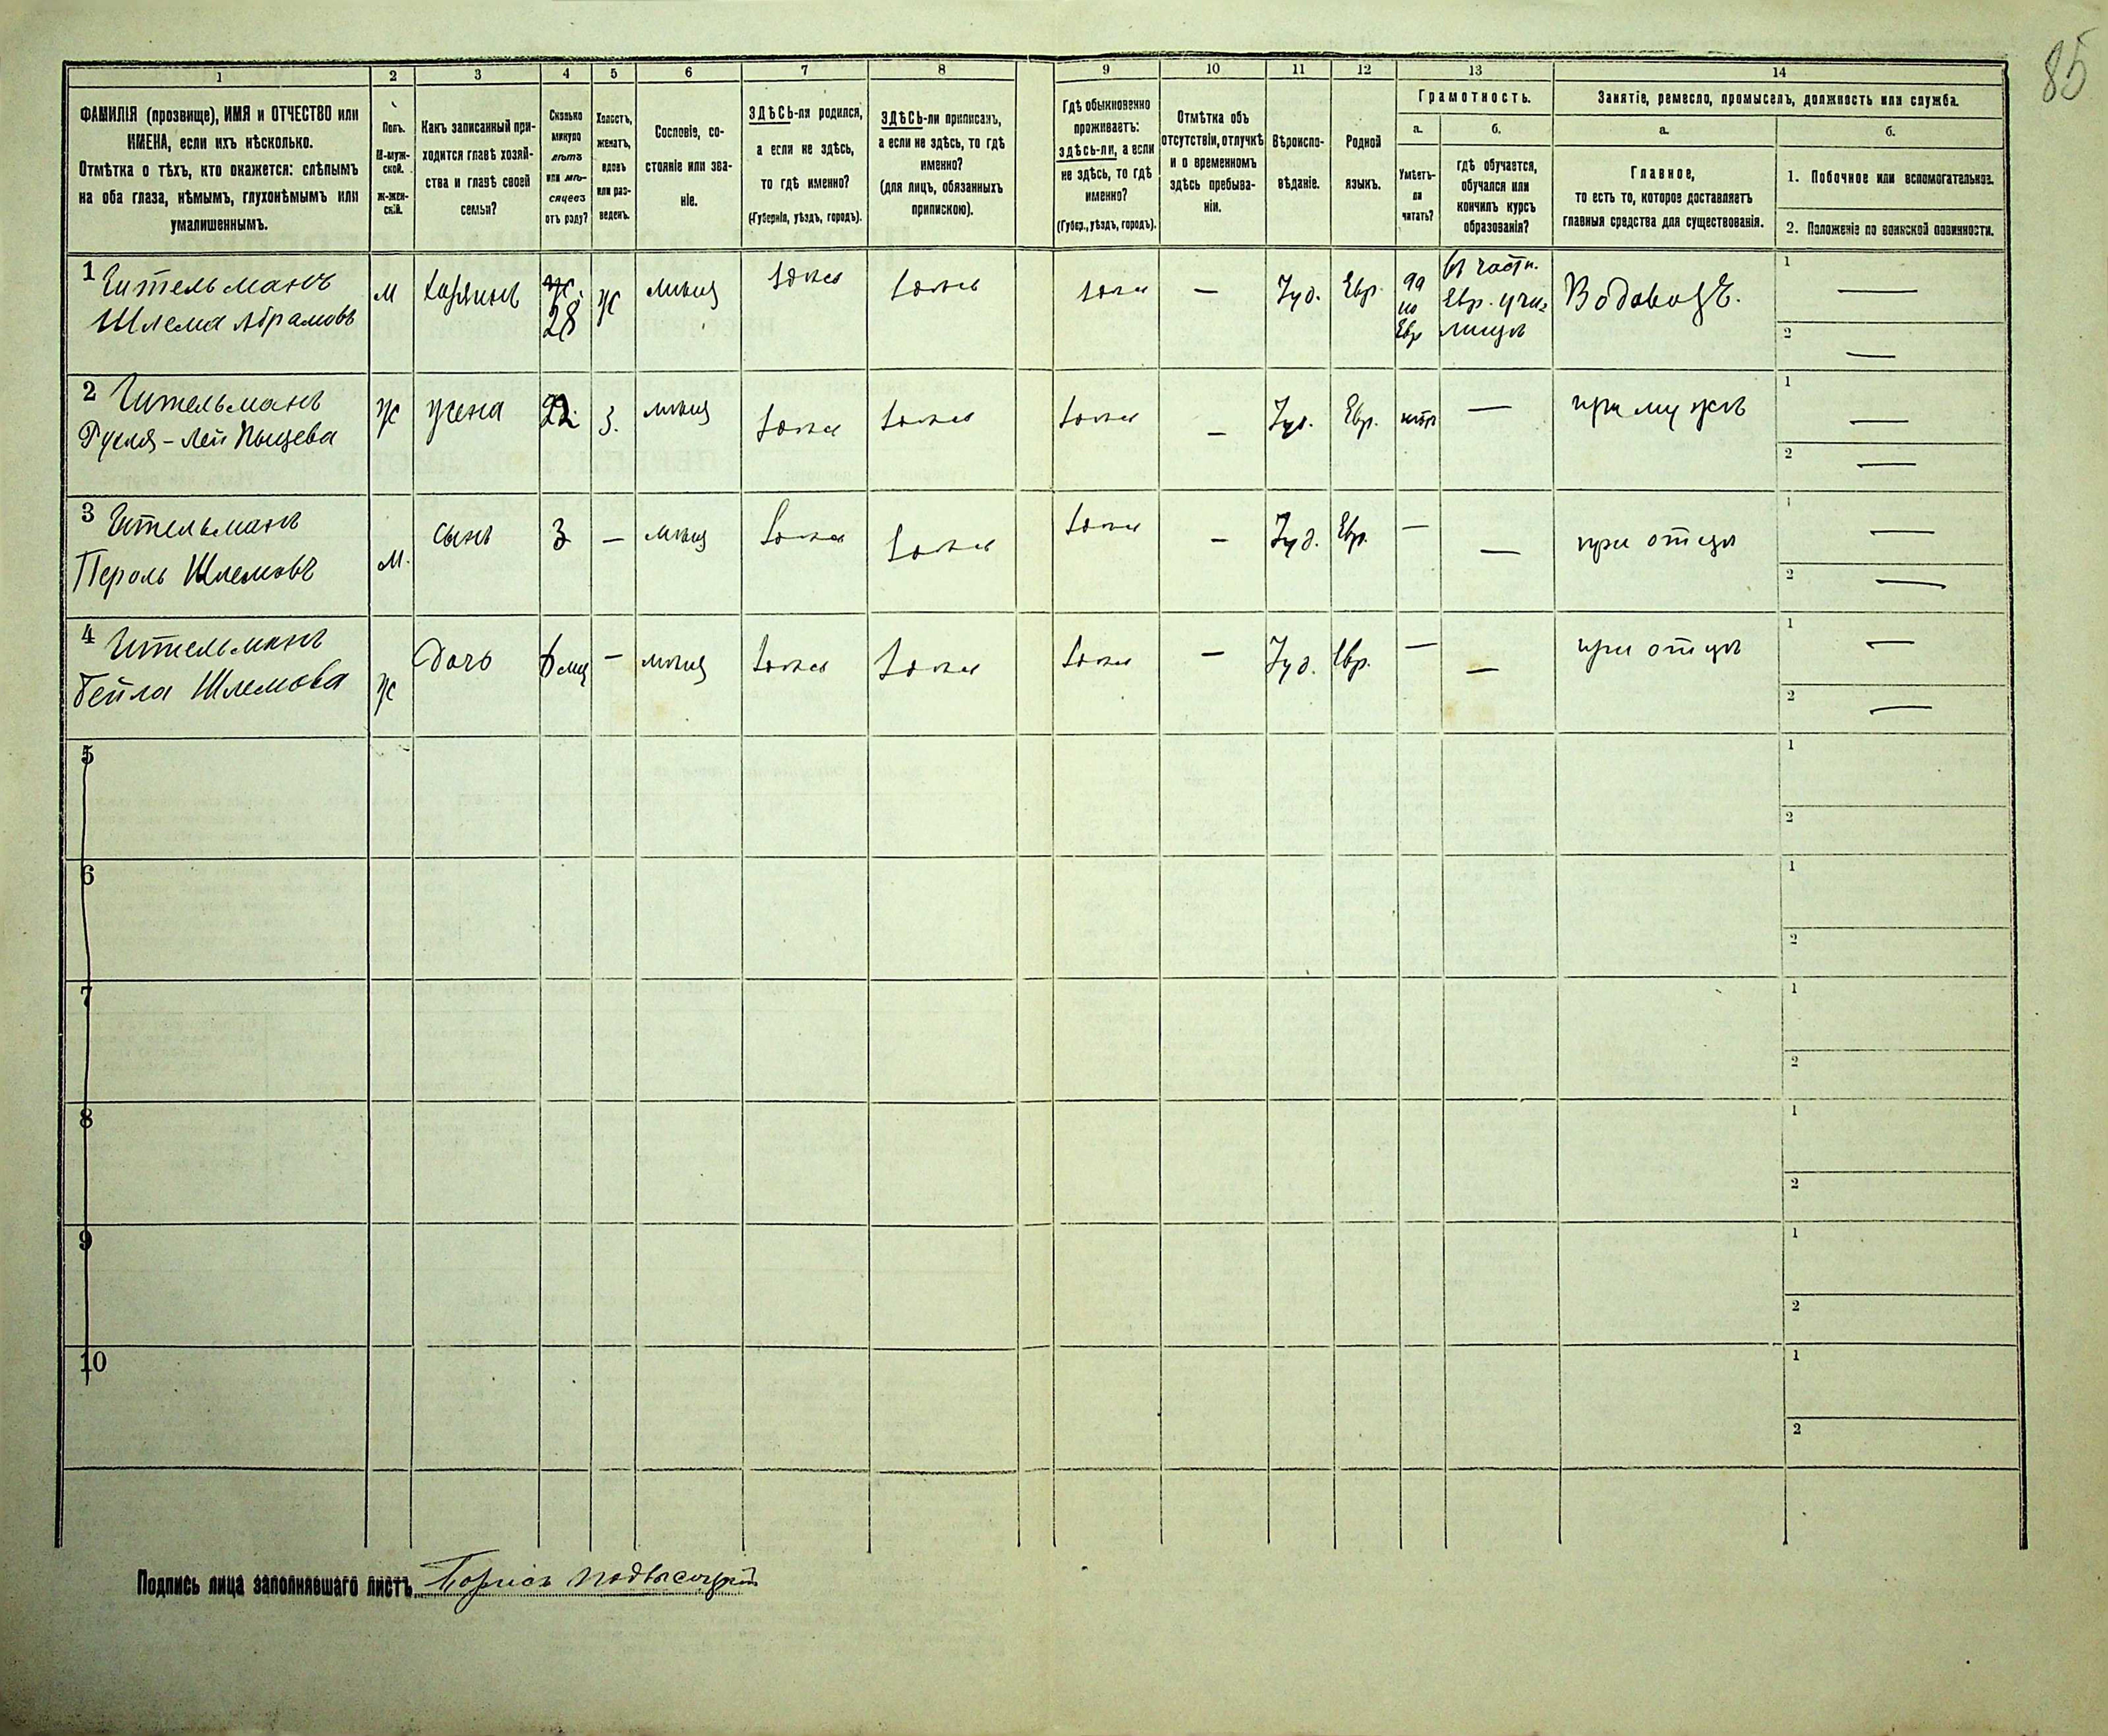 85
1 2 3 4 5 6 7 8 9 10 11 12 13 14
ФАМИЛІЯ (прозвище), ИМЯ и ОТЧЕСТВО или
ИМЕНА, если ихъ нѣсколько.
Отмѣтка о тѣхъ, кто окажется: слѣпымъ
на оба глаза, нѣмымъ, глухонѣмымъ или
умалишеннымъ.
Полъ.
М-муж-
ской.
Ж-жен-
скій.
Какъ записанный при-
ходится главѣ хозяй-
ства и главѣ своей
семьи?
Сколько
минуло
лѣтъ
или мѣ-
сяцевъ
отъ роду?
Холостъ,
женатъ,
вдовъ
или раз-
веденъ.
Сословіе, со-
стояніе или зва-
ніе.
ЗДѢСЬ-ли родился,
а если не здѣсь,
то гдѣ именно?
(Губернія, уѣздъ, городъ).
ЗДѢСЬ-ли приписанъ,
а если не здѣсь, то гдѣ
именно?
(для лицъ, обязанныхъ
припискою).
Гдѣ обыкновенно
проживаетъ:
здѣсь-ли, а если
не здѣсь, то гдѣ
именно?
(Губер., уѣздъ, городъ).
Отмѣтка объ
отсутствіи, отлучкѣ
и о временномъ
здѣсь пребыва-
ніи.
Вѣроиспо-
вѣданіе.
Родной
языкъ.
Грамотность.
а.
Умѣетъ-
ли
читать?
б.
гдѣ обучается,
обучался или
кончилъ курсъ
образованія?
Занятіе, ремесло, промыселъ, должность или служба.
а.
Главное,
то есть то, которое доставляетъ
главныя средства для существованія.
б.
1. Побочное или вспомогательное.
2. Положеніе по воинской повинности.
1 Гительманъ
Шлема Абрамовъ
М
хозяинъ
28
ж
мѣщ
здѣсь
здѣсь
здѣсь
—
Іуд.
Евр.
да
по
Евр
въ частн.
Евр. учи-
лищѣ
Водовозъ.
1 —
2 —
2 Гительманъ
Ж
жена
22
З.
мѣщ
здѣсь
здѣсь
здѣсь
—
Іуд.
Евр.
нѣтъ
—
при мужѣ
1 —
2 —
3 Гительманъ
Шлемовъ
М.
сынъ
3
—
мѣщ
здѣсь
здѣсь
здѣсь
—
Іуд.
Евр.
—
—
при отцѣ
1 —
2 —
4 Гительманъ
Бейла Шлемова
Ж
Дочь
6 мѣц
—
мѣщ
здѣсь
здѣсь
здѣсь
—
Іуд.
Евр.
—
—
при отцѣ
1 —
2 —
5
1
2
6
1
2
7
1
2
8
1
2
9
1
2
10
1
2
Подпись лица заполнявшаго листъ Борисъ Подвысоцкій